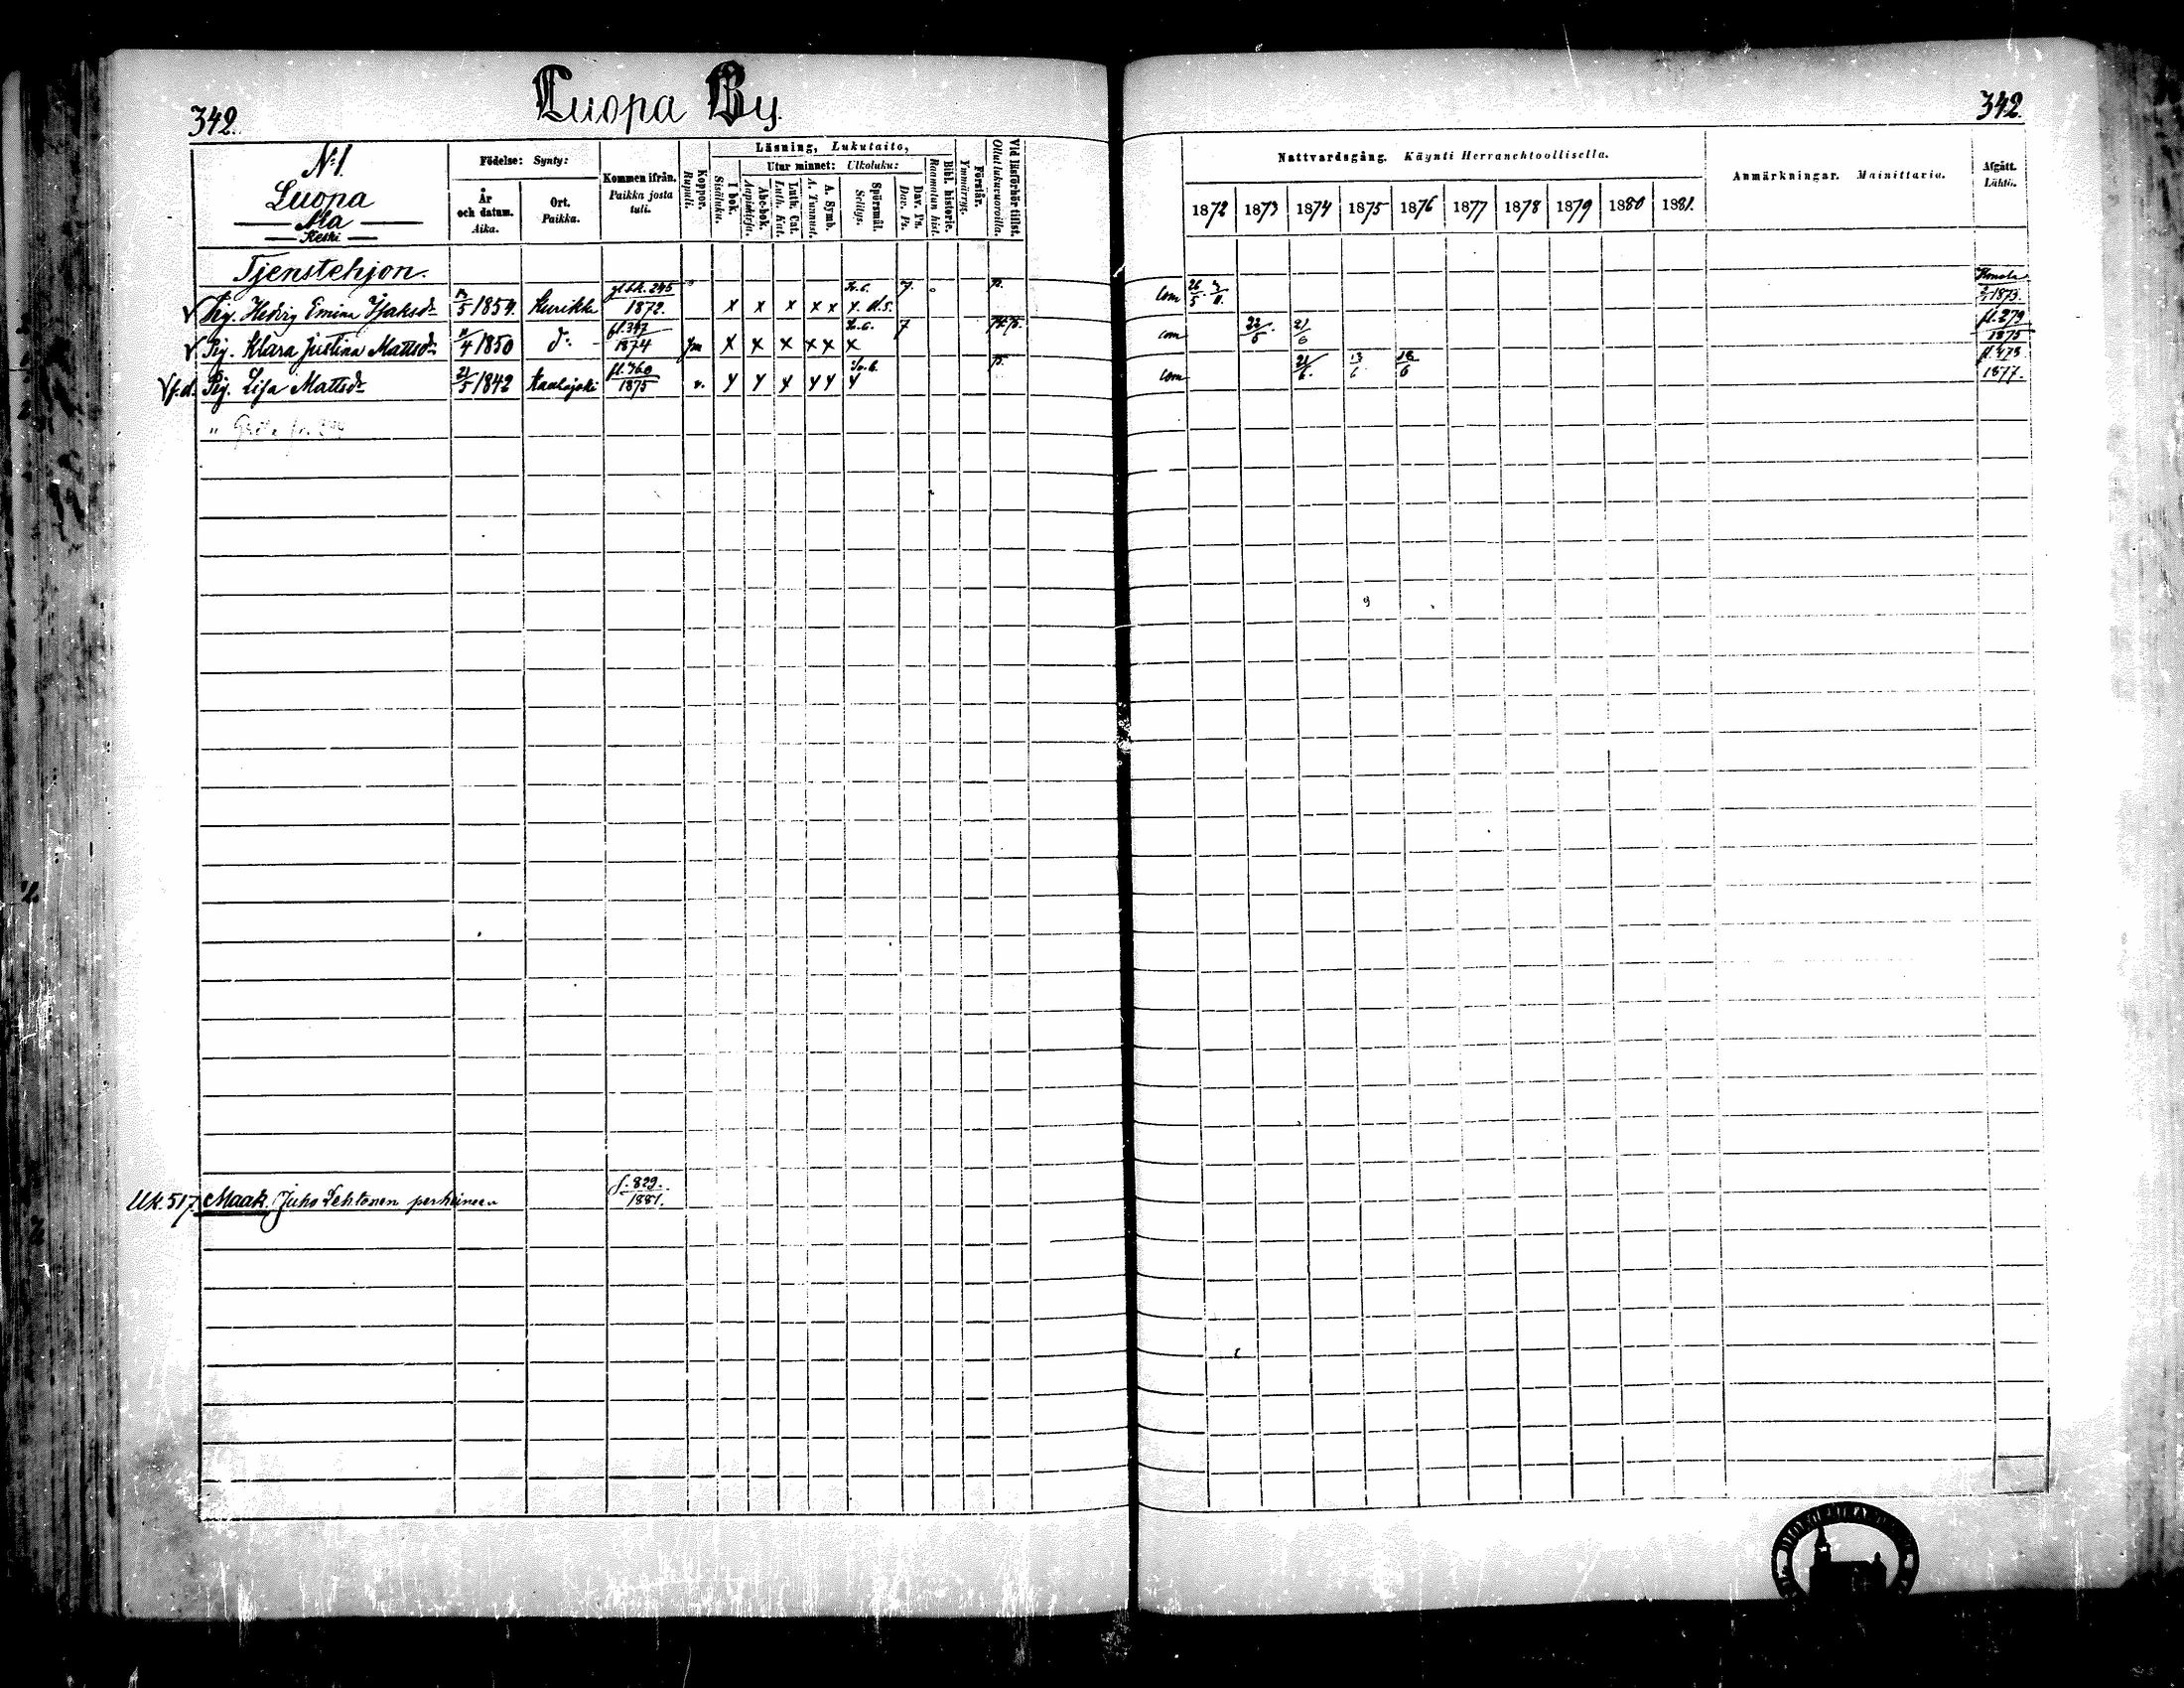 342.
Luopa By.
342.
N:1.
Luopa
Ala
Keski
Födelse: Synty:
År och datum. Aika.
Ort. Paikka.
Kommen ifrån. Paikka josta tuli.
Koppor. Rupuli.
Läsning, Lukutaito,
I bok. Sisäluku.
Utur minnet: Ulkoluku:
Abc-bok. Aapiskirja.
Luth. Cat. Luth. Kat.
A. Symb. A. Tunnust.
Spörsmål. Selitys.
Dav. Ps. Dav. Ps.
Bibl. historie. Raamatun hist.
Förstår. Ymmärrys.
Vid läsförhör tillst. Ollut lukuvuoroilla.
Nattvardsgång. Käynti Herranehtoollisella.
1872 1873 1874 1875 1876 1877 1878 1879 1880 1881.
Anmärkningar. Mainittavia.
Afgått. Lähtö.
Tjenstehjon.
Pig. Hedvig Emina Isaksdr 5 1854. Kurikka gl.bk. 245 1872. x x x x x x d.s. 7. com 26/5 1873.
Pig. Klara Justina Mattsdr 4 1850 do fl. 347 1874 x x x x x x 7 com 22/6 21/6 fl. 279 1875
f.d. Pig. Lisa Mattsdr 21/5 1842 fl. 460 1875 v. com 21/6 13/6 18/6 1877.
Uk. 517. Maak. Juho Lehtonen perheineen f. 829. 1881.